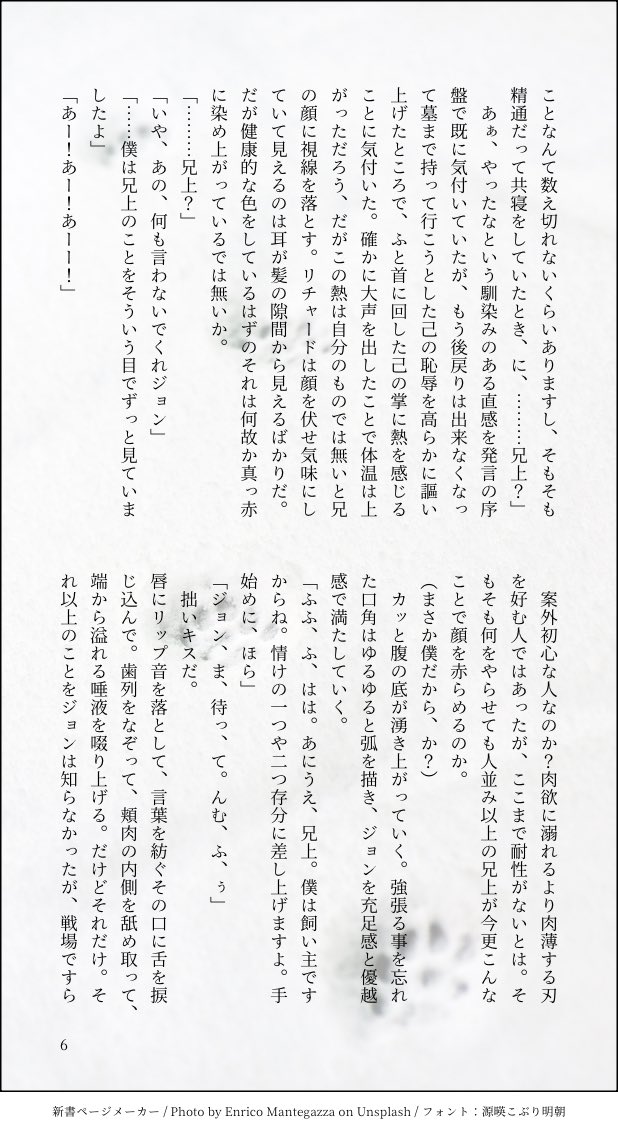 ことなんて数え切れないくらいありますし、そもそも
精通だって共寝をしていたとき、に、………兄上？」
　あぁ、やったなという馴染みのある直感を発言の序
盤で既に気付いていたが、もう後戻りは出来なくなっ
て墓まで持って行こうとした己の恥辱を高らかに謳い
上げたところで、ふと首に回した己の掌に熱を感じる
ことに気付いた。確かに大声を出したことで体温は上
がっただろう、だがこの熱は自分のものでは無いと兄
の顔に視線を落とす。リチャードは顔を伏せ気味にし
ていて見えるのは耳が髪の隙間から見えるばかりだ。
だが健康的な色をしているはずのそれは何故か真っ赤
に染め上がっているでは無いか。
「………兄上？」
「いや、あの、何も言わないでくれジョン」
「……僕は兄上のことをそういう目でずっと見ていま
したよ」
「あー！あー！あーー！」
　案外初心な人なのか？肉欲に溺れるより肉薄する刃
を好む人ではあったが、ここまで耐性がないとは。そ
もそも何をやらせても人並み以上の兄上が今更こんな
ことで顔を赤らめるのか。
（まさか僕だから、か？）
　カッと腹の底が湧き上がっていく。強張る事を忘れ
た口角はゆるゆると弧を描き、ジョンを充足感と優越
感で満たしていく。
「ふふ、ふ、はは。あにうえ、兄上。僕は飼い主です
からね。情けの一つや二つ存分に差し上げますよ。手
始めに、ほら」
「ジョン、ま、待っ、て。んむ、ふ、ぅ」
　拙いキスだ。
唇にリップ音を落として、言葉を紡ぐその口に舌を捩
じ込んで。歯列をなぞって、頬肉の内側を舐め取って、
端から溢れる唾液を啜り上げる。だけどそれだけ。そ
れ以上のことをジョンは知らなかったが、戦場ですら
6
新書ページメーカー / Photo by Enrico Mantegazza on Unsplash / フォント：源暎こぶり明朝